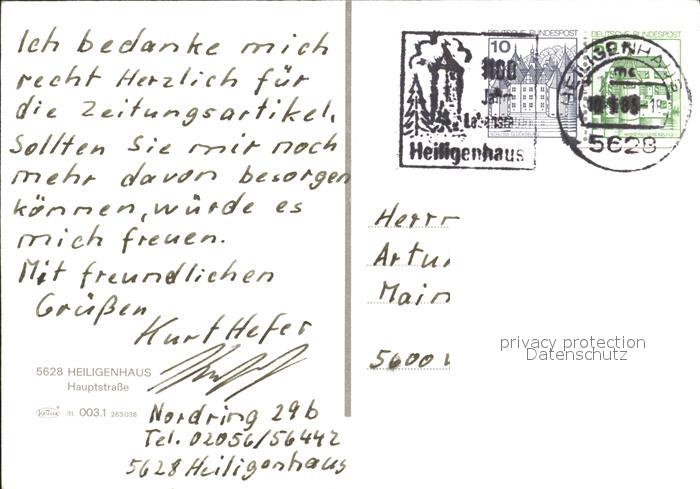 Ich bedanke mich
recht Herzlich für
die Zeitungsartikel.
Sollten Sie mir noch
mehr davon besorgen
können, würde es
mich freuen.
Mit freundlichen
Grüßen
Kurt Hefer
5628 HEILIGENHAUS
Hauptstraße
31 003.1 263 038
Nordring 29b
Tel. 02056/56442
5628 Heiligenhaus
Heiligenhaus
10
DEUTSCHE BUNDESPOST
DEUTSCHE BUNDESPOST
HEILIGENHAUS
mc
5628
Herrn
Artur
5600
privacy protection
Datenschutz